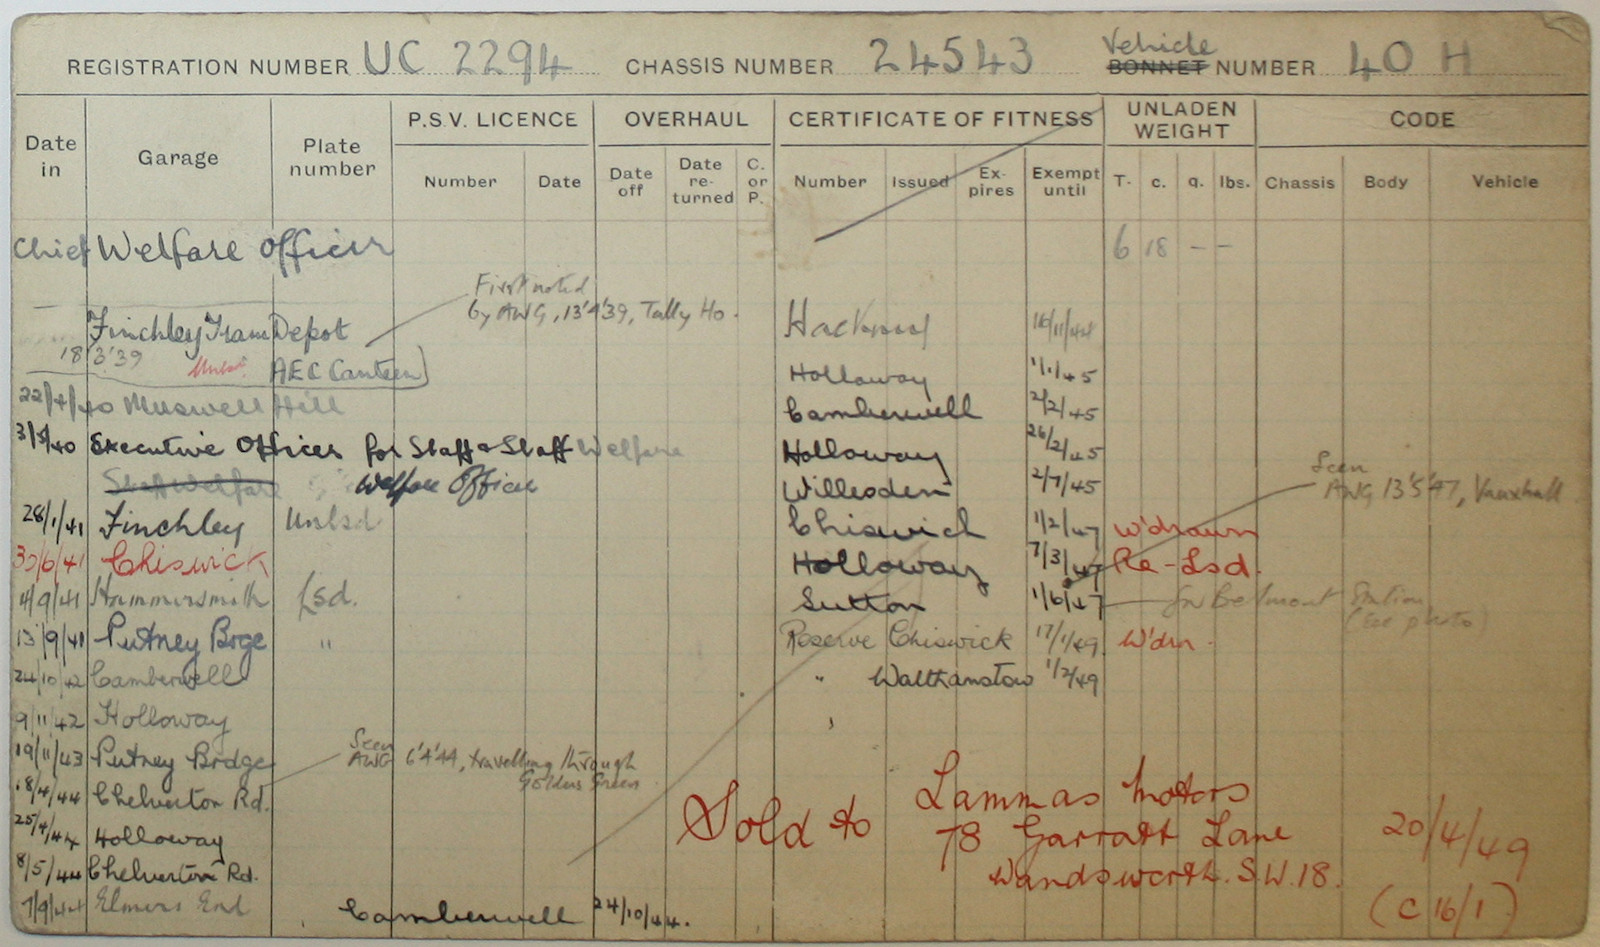 REGISTRATION NUMBER UC 2294 CHASSIS NUMBER 24543 Vehicle BONNET NUMBER 40 H
Date in Garage Plate number P.S.V. LICENCE OVERHAUL CERTIFICATE OF FITNESS UNLADEN WEIGHT CODE
Number Date Date off Date re-turned C. or P. Number Issued Ex-pires Exempt until T. c. q. lbs. Chassis Body Vehicle
Chief Welfare Officer 6 18 - -
First noted
by AWG, 13'4'39, Tally Ho.
Finchley Tram Depot Hackney 16/11/44
18'3'39 Unlsd. AEC Canteen) Holloway 1/1/45
22/4/40 Muswell Hill Camberwell 2/2/45
3/5/40 Executive Officer for Staff & Staff Welfare Holloway 26/2/45
Staff Welfare Welfare Officer Willesden 2/7/45
Seen
AWG 13'5'47, Vauxhall
28/1/41 Finchley Unlsd. Chiswick 1/2/47 W'drawn
30/6/41 Chiswick Holloway 7/3/47 Re-Lsd.
4/9/41 Hammersmith Lsd. Sutton 1/6/47 for Belmont Station
(see photo)
13/9/41 Putney Bdge " Reserve Chiswick 17/1/49 W'drn.
24/10/42 Camberwell " Walthamstow 1/2/49
9/11/42 Holloway
19/11/43 Putney Bridge Seen
AWG 6'4'44, travelling through
Golders Green
18/4/44 Chelverton Rd.
25/4/44 Holloway
8/5/44 Chelverton Rd.
7/9/44 Elmers End Camberwell 24/10/44.
Sold to Lammas Motors
78 Garratt Lane 20/4/49
Wandsworth. S.W.18.
(C 16/1)